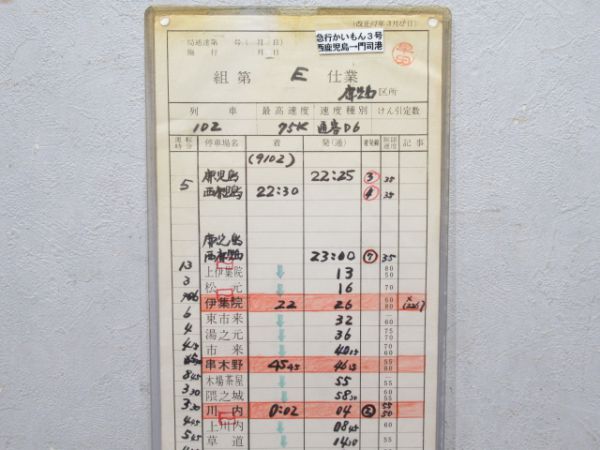 (改正47年3月15日)
急行かいもん3号
西鹿児島→門司港
局達達第 号( 月 日)
施行 月 日
組第 E 仕業
鹿児島 区所
列車 最高速度 速度種別 けん引定数
102 95K 通客D6
運転時分 停車場名 着 発(通) 着発線 制限速度 記事
(9102)
5 鹿児島 22:25 3 35
西鹿児島 22:30 4 35
鹿児島
西鹿児島 23:00 7 35
13 上伊集院 13 80 50
3 松元 16 70
伊集院 22 26 60 80
6 東市来 32 60
4 湯之元 36 75 70
415 市来 4015 80
串木野 4545 4615 55 80
845 木場茶屋 55 55
330 隈之城 5830
330 川内 0:02 04 2 55 50
445 上川内 0845 60
545 草道 1430 55